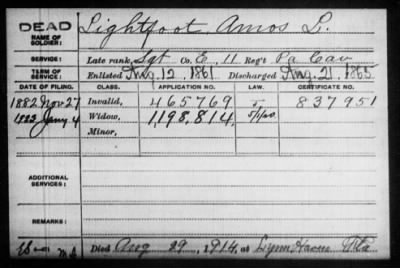 DEAD
NAME OF SOLDIER: Lightfoot, Amos L.
SERVICE: Late rank, Sgt Co. E, 11 Reg't Pa Cav
TERM OF SERVICE: Enlisted Aug. 12, 1861 Discharged Aug. 21, 1865
DATE OF FILING. CLASS. APPLICATION NO. LAW. CERTIFICATE NO.
1882 Nov 27 Invalid, 465769 837951
Jany 4 Widow, 1198,814
Minor,
ADDITIONAL SERVICES:
REMARKS:
Died Aug 29, 1914, at Lynn Haven Fla